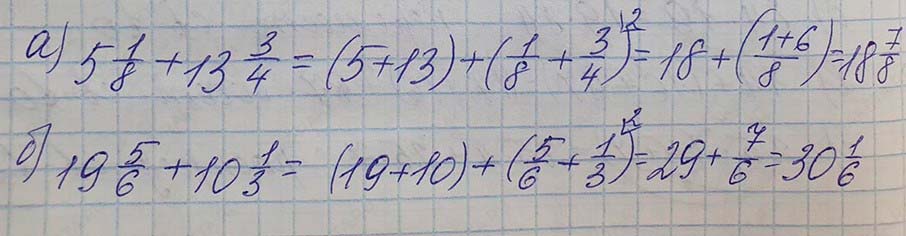 а) 5 1/8 + 13 3/4 = (5+13) + (1/8 + 3/4)^2 = 18 + (1+6/8) = 18 7/8
б) 19 5/6 + 10 1/3 = (19+10) + (5/6 + 1/3)^2 = 29 + 7/6 = 30 1/6